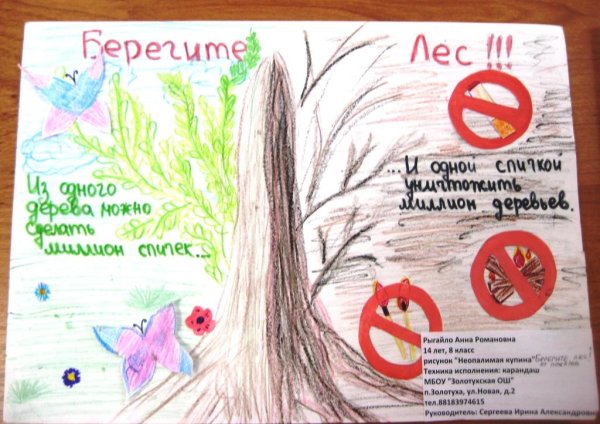 Берегите Лес !!!
Из одного
дерева можно
сделать
миллион спичек...
...И одной спичкой
уничтожить
миллион деревьев.
Рыгайло Анна Романовна
14 лет, 8 класс
рисунок "Неопалимая купина"
Берегите лес!
от пожара
Техника исполнения: карандаш
МБОУ "Золотухская ОШ"
п.Золотуха, ул.Новая, д.2
тел.88183974615
Руководитель: Сергеева Ирина Александровна